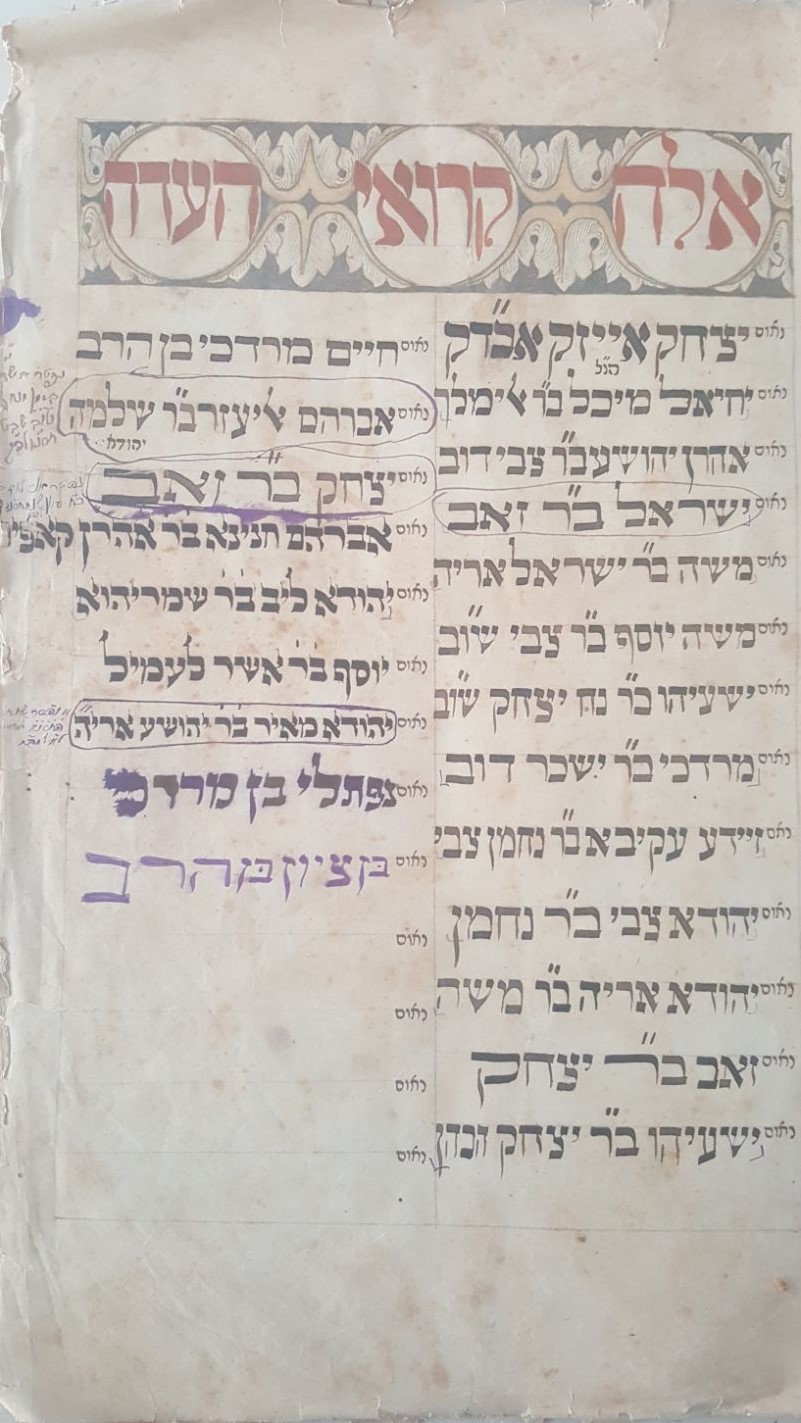 אלה קרואי העדה
נאום יצחק אייזק אבדק
הנ״ל
נאום יחיאל מיכל ב״ר אימלך
נאום אהרן יהושע ב״ר צבי דוב
נאום ישראל ב״ר זאב
נאום משה ב״ר ישראל אריה
נאום משה יוסף ב״ר צבי שו״ב
נאום ישעיהו ב״ר נח יצחק שו״ב
נאום מרדכי ב״ר ישכר דוב
נאם זיידע עקיבא ב״ר נחמן צבי
נאום יהודא צבי ב״ר נחמן
נאום יהודא אריה ב״ר משה
נאום זאב ב״ר יצחק
נאום ישעיהו ב״ר יצחק הכהן
נאום חיים מרדכי בן הרב
נאום אברהם איעזר ב״ר שלמה
יהודא
נאום יצחק ב״ר זאב
נאום אברהם חנינא ב״ר אהרן
נאום יהודא ליב ב״ר שמריהוא
נאום יוסף ב״ר אשר לעמיל
נאום יהודא מאיר ב״ר יהושע אריה
נאום נפתלי בן מרדכי
נאום בן ציון בן הרב
נאום
נאום
נאום
נאום